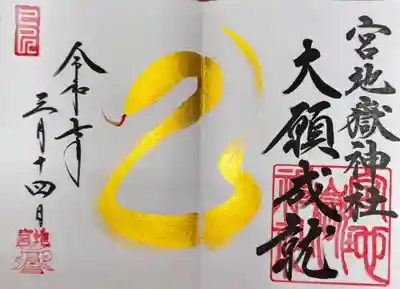 宮地嶽神社
大願成就
令和七年
三月十四日